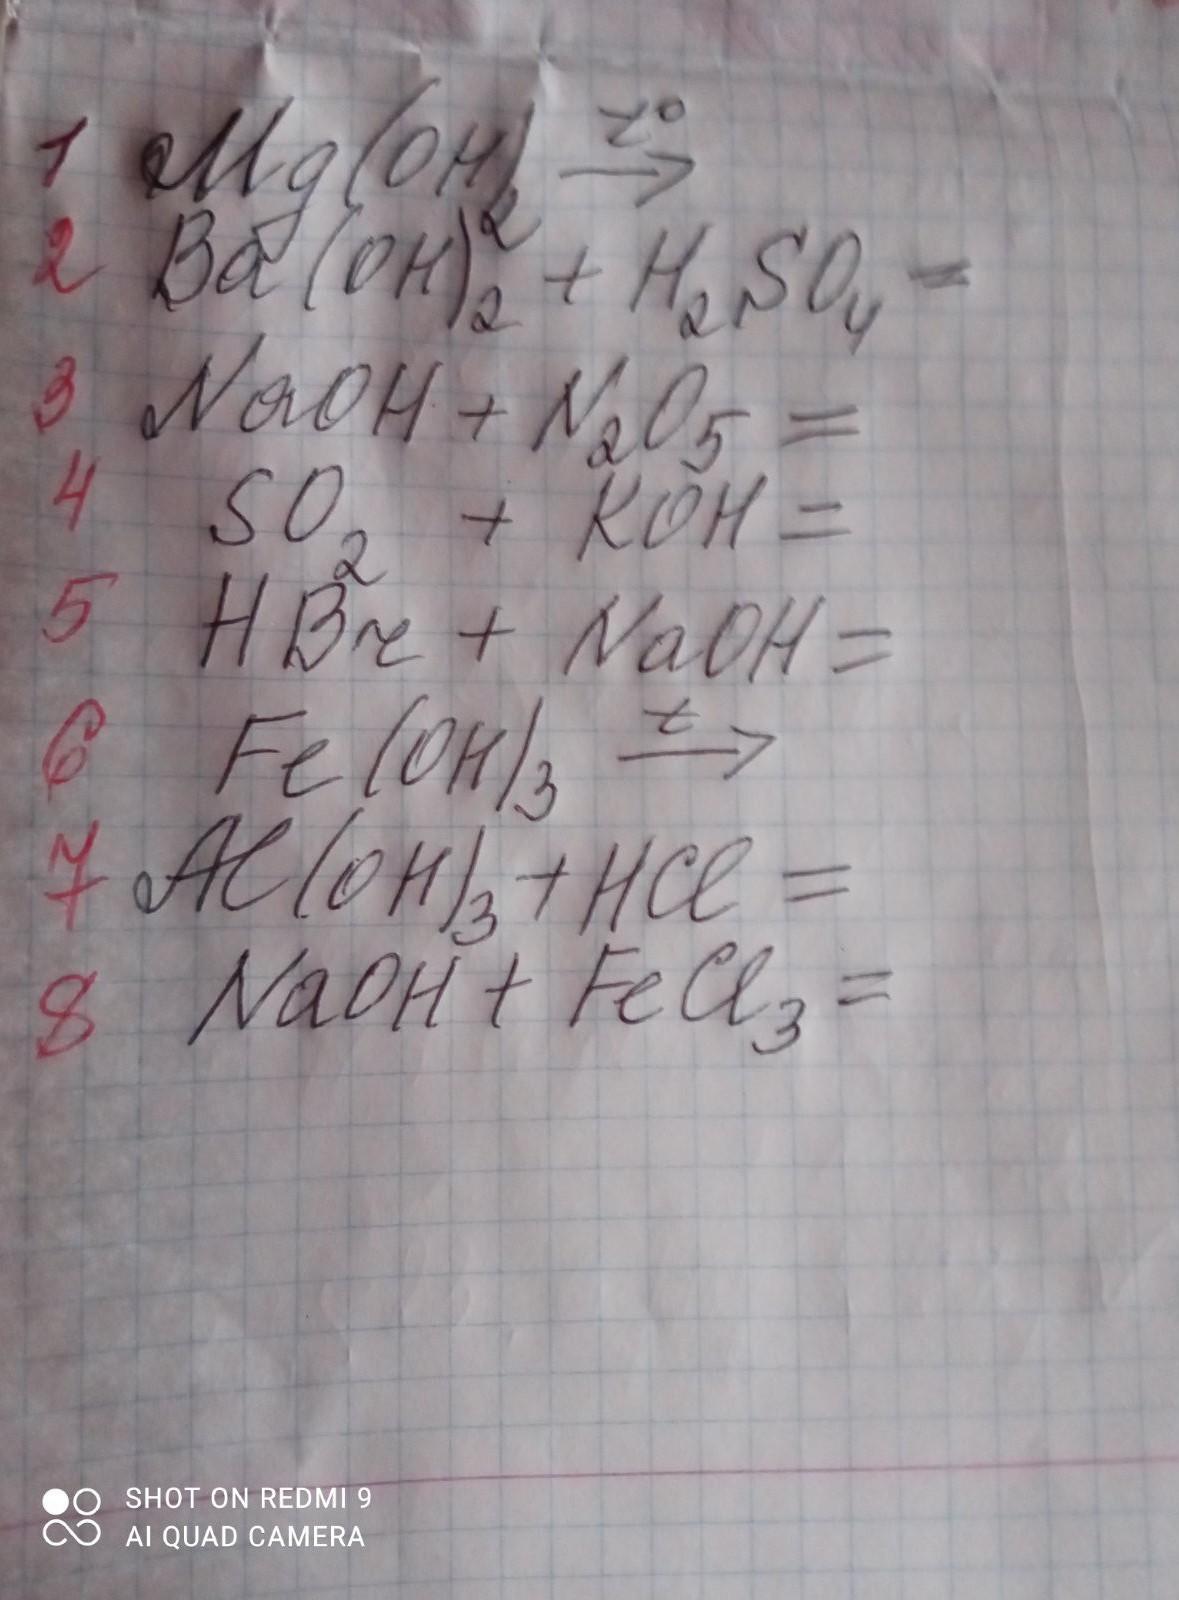 1 Mg(OH)₂ t° →
2 Ba(OH)₂ + H₂SO₄ =
3 NaOH + N₂O₅ =
4 SO₂ + KOH =
5 HBr + NaOH =
6 Fe(OH)₃ t →
7 Al(OH)₃ + HCl =
8 NaOH + FeCl₃ =
SHOT ON REDMI 9
AI QUAD CAMERA